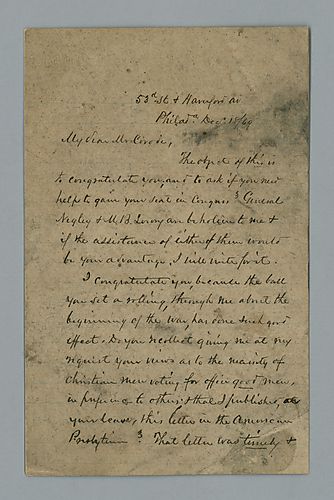 53rd St & Haverford av
Philada Decr 18/69
My Dear Mr Covode,
The object of this is
to congratulate you, and to ask if you need
help to gain your seat in Congress? General
Negley & M B Lowry are beholden to me &
if the assistance of either of them would
be your advantage, I will write for it.
I congratulate you, because the ball
you set a rolling, through me about the
beginning of the war, has done such good
effect. Do you recollect giving me at my
request your views as to the necessity of
Christian men voting for office good men,
in preference to others & that I published, 
your leave, this letter in the American
Presbyterian? That letter was timely &